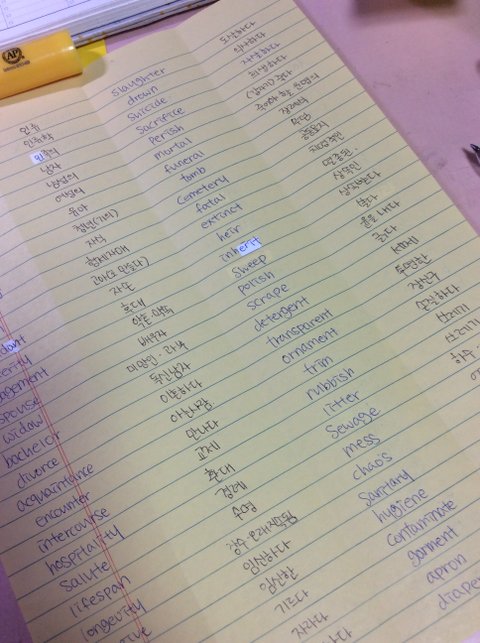 인류
인류학
인류의
남자
남성의
여성의
유아
청년(기의)
자식
형제자매
고아(로 만들다)
자손
후대
약혼·약속
배우자
미망인·과부
독신남자
이혼하다
아는사람
만나다
교제
환대
경례
수명
장수·오래지속됨
임신하다
임신한
기르다
자라다
slaughter
drown
suicide
sacrifice
perish
mortal
funeral
tomb
cemetery
fatal
extinct
heir
inherit
sweep
polish
scrape
detergent
transparent
ornament
trim
rubbish
litter
sewage
mess
chaos
sanitary
hygiene
contaminate
garment
apron
diape
도살하다
익사하다
자살하다
희생하다
(갑자기) 죽다
죽어야 할 운명의
장례식
무덤
공동묘지
치명적인
멸종된
상속인
상속받다
쓸다
윤을 내다
긁다
세제
투명한
장신구
손질하다
쓰레기
쓰레기
하수
ndant
erity
agement
spouse
widow
bachelor
divorce
acquaintance
encounter
intercourse
hospitality
salute
lifespan
longevity